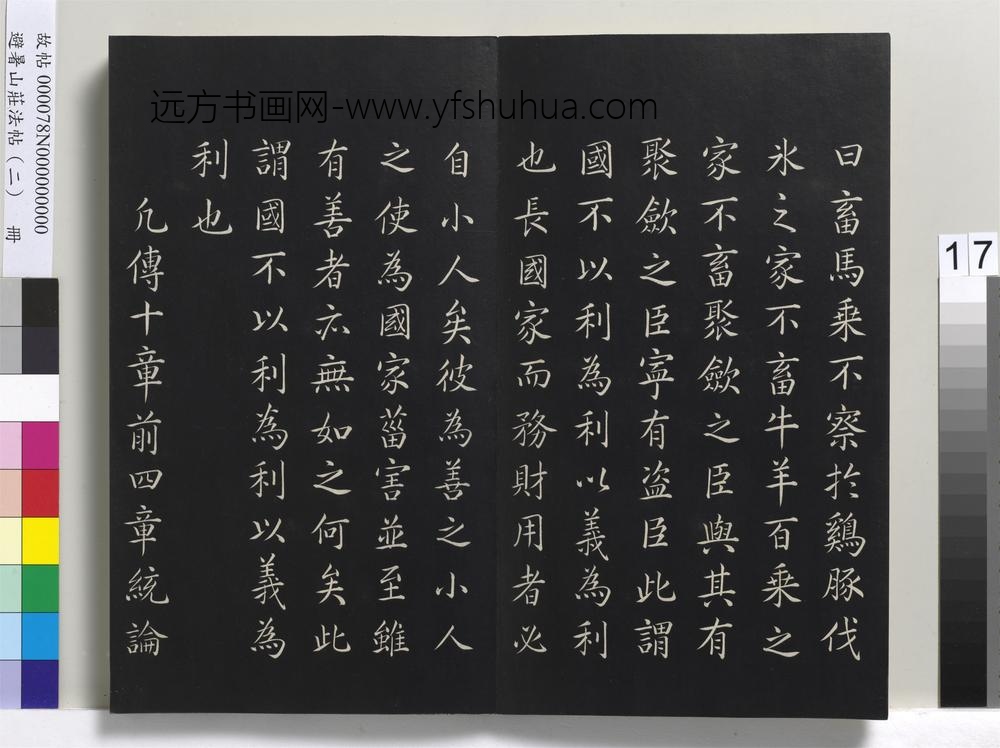 曰畜馬乘不察於鷄豚伐
氷之家不畜牛羊百乘之
家不畜聚歛之臣與其有
聚歛之臣寧有盗臣此謂
國不以利為利以義為利
也長國家而務財用者必
自小人矣彼為善之小人
之使為國家菑害並至雖
有善者亦無如之何矣此
謂國不以利為利以義為
利也
凢傳十章前四章統論
远方书画网-www.yfshuhua.com
故帖 000078N000000000
避暑山莊法帖（二） 冊
17